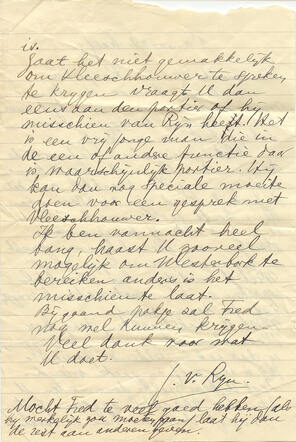 is.
Gaat het niet gemakkelijk
om Vleeschhouwer te spreken
te krygen vraagt U dan
eens aan den portier of hy
misschien van Ryn heet. Het
is een vry jonge man die in
de een of andere functie daar
is, waarschynlyk portier. Hy
kan dan nog speciale moeite
doen voor een gesprek met
Vleeschhouwer.
Ik ben vannacht heel
bang, haast U zooveel
mogelyk om Westerbork te
bereiken anders is het
misschien te laat.
Bygaand pakje zal Fred
nog wel kunnen krygen
Veel dank voor wat
U doet.
J. v. Ryn.
Mocht Fred te veel goed hebben (als
hy werkelyk zou moeten gaan) laat hy dan
de rest aan anderen geven.